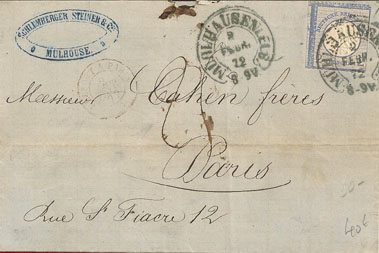 SCHLUMBERGER STEINER & Cº
MULHOUSE
MÜLHAUSEN i/ELS.
2
FEBR.
72
8-9V.
2
FEBR.
72
8-9V.
Messieurs Cahen frères
Paris
Rue St Fiacre 12